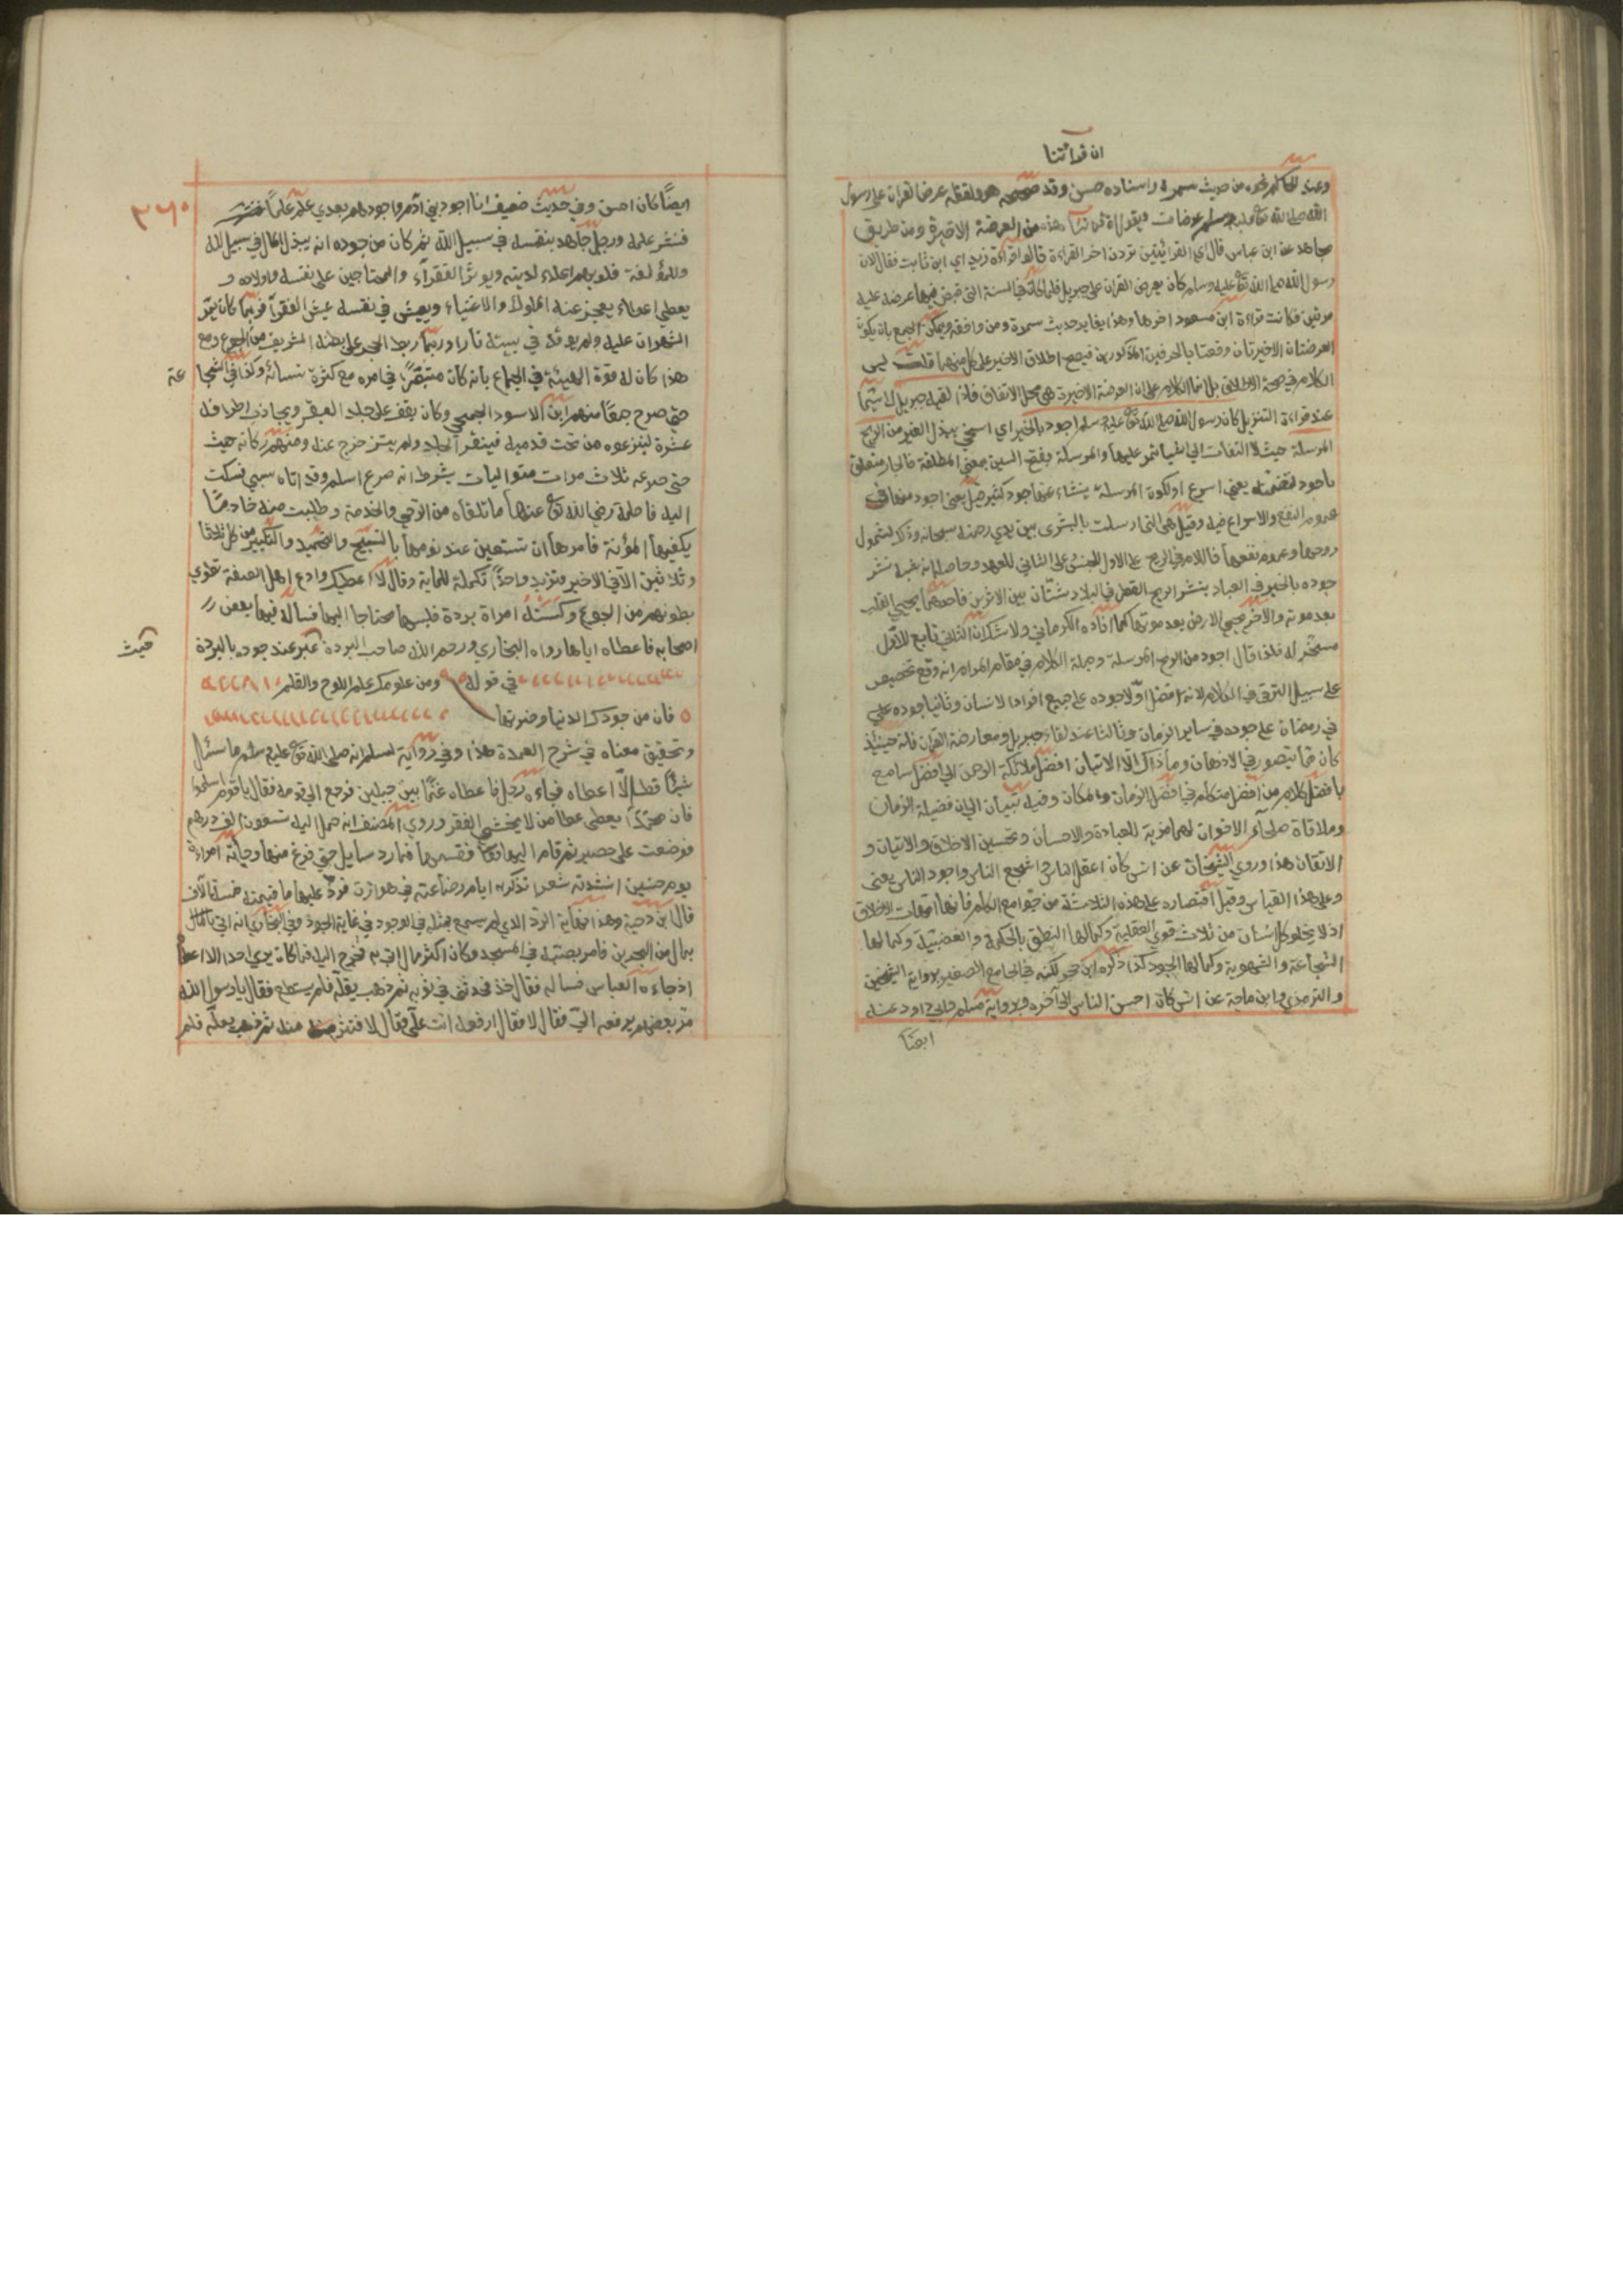 ان قراءتنا
وعند الحاكم نحوه من حديث سمرة واسناده حسن وقد صححه هو ولفظه عرض القران على رسول
الله صلى الله تع عليه وسلم عرضات ويقولون ان قراءتنا هذه من العرضة الاخيرة ومن طريق
مجاهد عن ابن عباس قال اي القراءتين ترون اخر القراءة قالوا قراءة زيد اي ابن ثابت فقال لا ان
رسول الله صلى الله تع عليه وسلم كان يعرض القران على جبريل فلما كان في السنة التي قبض فيها عرضه عليه
مرتين فكانت قراءة ابن مسعود اخرها وهذا يغاير حديث سمرة ومن وافقه ويمكن الجمع بان يكون
العرضتان الاخيرتان وقعتا بالحرفين المذكورين فيصح اطلاق الاخير على كل منهما قلت ليس
الكلام في صحة الاطلاق بل انما الكلام على ان العرضة الاخيرة هي محل الاتفاق فاذا لقيه جبريل لا سيما
عند قراءة التنزيل كان رسول الله صلى الله تع عليه وسلم اجود بالخير اي اسخى ببذل الخير من الريح
المرسلة حيث لا التفات الى اشيا تمر عليها والمرسلة بفتح السين بمعنى المطلقة فالجار متعلق
باجود لتضمنه يعني اسرع او لكون المرسلة ينشاء عنها جود كثير يعني اجود منها في
عموم النفع والاسراع فيه وقيل هي التي ارسلت بالبشرى بين يدي رحمته سبحانه وذلك لشمول
روحها وعموم نفعها فاللام في الريح على الاول للجنس وعلى الثاني للعهد وحاصله انه شبه نشر
جوده بالخير في العباد بنشر الريح القطر في البلاد وشتان بين الاثرين فاحدهما يحيي القلب
بعد موته والاخر يحيي الارض بعد موتها كما افاده الكرماني ولا شك ان الثاني تابع للاول
مسخر له فلذا قال اجود من الريح المرسلة وجملة الكلام في مقام المرام انه وقع تخصيص
على سبيل الترقي في الكلام لانه افضل اولا جوده على جميع افراد الانسان وثانيا جوده على
في رمضان على جوده في ساير الزمان وثالثا عند لقاء جبريل ومعارضة القران فانه حينئذ
كان مما يتصور في الاذهان وما ذاك الا لاتيان افضل ملائكة الرحمن الى افضل سامع
بافضل كلام من افضل متكلم في افضل الزمان والمكان وفيه تبيان الى ان فضيلة الزمان
وملاقاة صلحاء الاخوان لهما مزية للعبادة والاحسان وتحسين الاخلاق والاتيان و
الاتقان هذا وروى الشيخان عن انس كان اعقل الناس واشجع الناس واجود الناس يعني
وعلى هذا القياس وقيل اقتصاره على هذه الثلاثة من جوامع الكلم فانها امهات الاخلاق
اذ لا يخلو كل انسان من ثلاث قوى العقلية وكمالها النطق بالحكمة والغضبية وكمالها
الشجاعة والشهوية وكمالها الجود كذا ذكره ابن حجر لكنه في الجامع الصغير برواية الشيخين
والترمذي وابن ماجة عن انس كان احسن الناس الى آخره وبرواية مسلم وابي داود عنه
ايضا
٣٦٠
ايضًا كان احسن وفي حديث ضعيف انا اجود بني آدم واجودهم بعدي علم علمًا
فنشر علمه ورجل جاهد بنفسه في سبيل الله ثم كان من جوده انه يبذل المال في سبيل الله
وللمؤلفة قلوبهم اعلاء لدينه ويوثر الفقراء والمحتاجين على نفسه واولاده و
يعطي اعطاء يعجز عنه الملوك والاغنياء ويعيش في نفسه عيش الفقرآ فربما كان يمر
الشهران عليه ولم يوقد في بيته نارا وربما ربط الحجر على بطنه الشريف من الجوع ومع
هذا كان له قوة الهيئة في الجماع بانه كان متبصرًا في امره مع كثرة نسائه وكذا في الشجا
عة
حتى صرع جمعًا منهم ابن الاسود الجمحي وكان يقف على جلد البقر ويجاذب اطرافه
عشرة لينزعوه من تحت قدميه فيتفرا الجلد ولم يتزحزح عنه ومنهم ركانه حيث
حتى صرعه ثلاث مرات متواليات بشرط انه صرع اسلم وقد اتاه سبي فشكت
اليه فاطمة رضي الله تع عنها ما تلقاه من الرحى والخدمة وطلبت منه خادمًا
يكفيها المؤنة فامرها ان تستعين عند نومها بالتسبيح والتحميد والتكبير من كل ثلاثا
وثلاثين الا في الاخير فتزيد واحدًا تكملة للماية وقال لا اعطيك وادع اهل الصفة تطوي
بطونهم من الجوع وكسته امراة بردة فلبسها محتاجا اليها فساله فيها بعض
اصحابه فاعطاه اياها رواه البخاري ورحم الله صاحب البردة عبر عند جوده بالبردة
حيث
في قوله ومن علومك علم اللوح والقلم
فان من جودك الدنيا وضرتها
وتحقيق معناه في شرح العمدة هذا وفي رواية لمسلم انه صلى الله تع عليه وسلم ما سئل
شيئًا قط الا اعطاه فجاءه رجل فاعطاه غنمًا بين جبلين فرجع الى قومه فقال يا قوم اسلموا
فان محمدًا يعطي عطا من لا يخشى الفقر وروى المصنف انه حمل اليه تسعون الف درهم
فوضعت على حصير ثم قام اليها فقسمها فما رد سايل حتى فرغ منها وجاته امراة
يوم حنين انشدته شعرا تذكره ايام رضاعته في هوازن فرد عليها ما قيمته خمسة آلاف
قال ابن دحية وهذا نهاية الرد الذي لم يسمع بمثله في الوجود في غاية الجود وفي البخاري انه اتي
بمال من البحرين فامر بصبه في المسجد وكان اكثر مال اتي به فخرج اليه فما كان يرى احدا الا اعطاه
اذ جاءه العباس فساله فقال خذ فحثى في ثوبه ثم ذهب يقله فلم يستطع فقال يا رسول الله
مر بعضهم يرفعه الي فقال لا فقال ارفعه انت علي فقال لا فنثر منه ثم ذهب يقله فلم